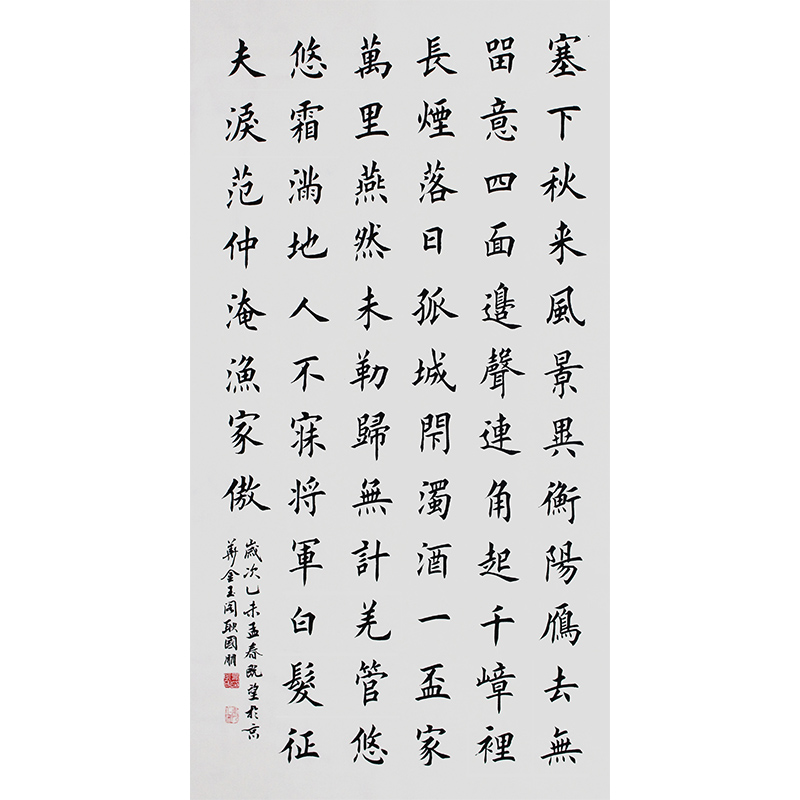 塞下秋来風景異衡陽鴈去無
㽞意四面邊聲連角起千嶂裡
長煙落日孤城閇濁酒一盃家
萬里燕然未勒歸無計羌管悠
悠霜滿地人不寐将軍白髮征
夫淚范仲淹漁家傲
歲次乙未孟春既望於京
華金玉阁耿國朋